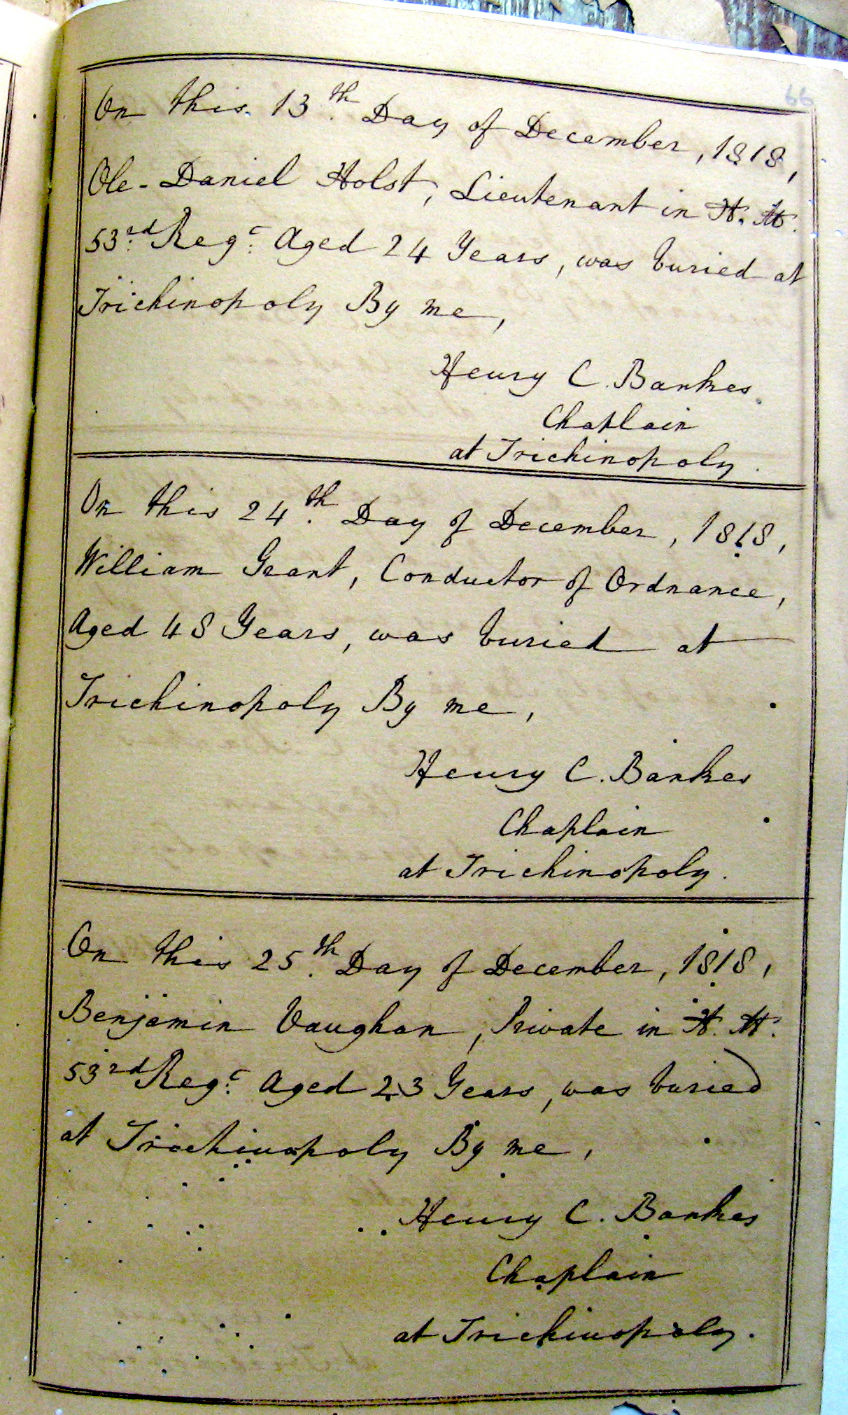 66
On this 13th Day of December, 1818,
Ole-Daniel Holst, Lieutenant in H. M.
53rd Regt. Aged 24 Years, was buried at
Trichinopoly By me,
Henry C. Bankes
Chaplain
at Trichinopoly.
On this 24th Day of December, 1818,
William Grant, Conductor of Ordnance,
Aged 48 Years, was buried at
Trichinopoly By me,
Henry C. Bankes
Chaplain
at Trichinopoly.
On this 25th Day of December, 1818,
Benjamin Vaughan, Private in H. M.
53rd Regt. Aged 23 Years, was buried
at Trichinopoly By me,
Henry C. Bankes
Chaplain
at Trichinopoly.